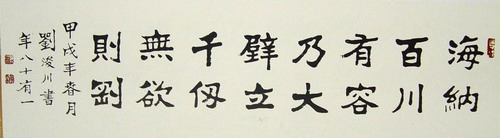 海納
百川
有容
乃大
壁立
千仞
無欲
則剛
甲戌年春月
劉浚川書
年八十有一